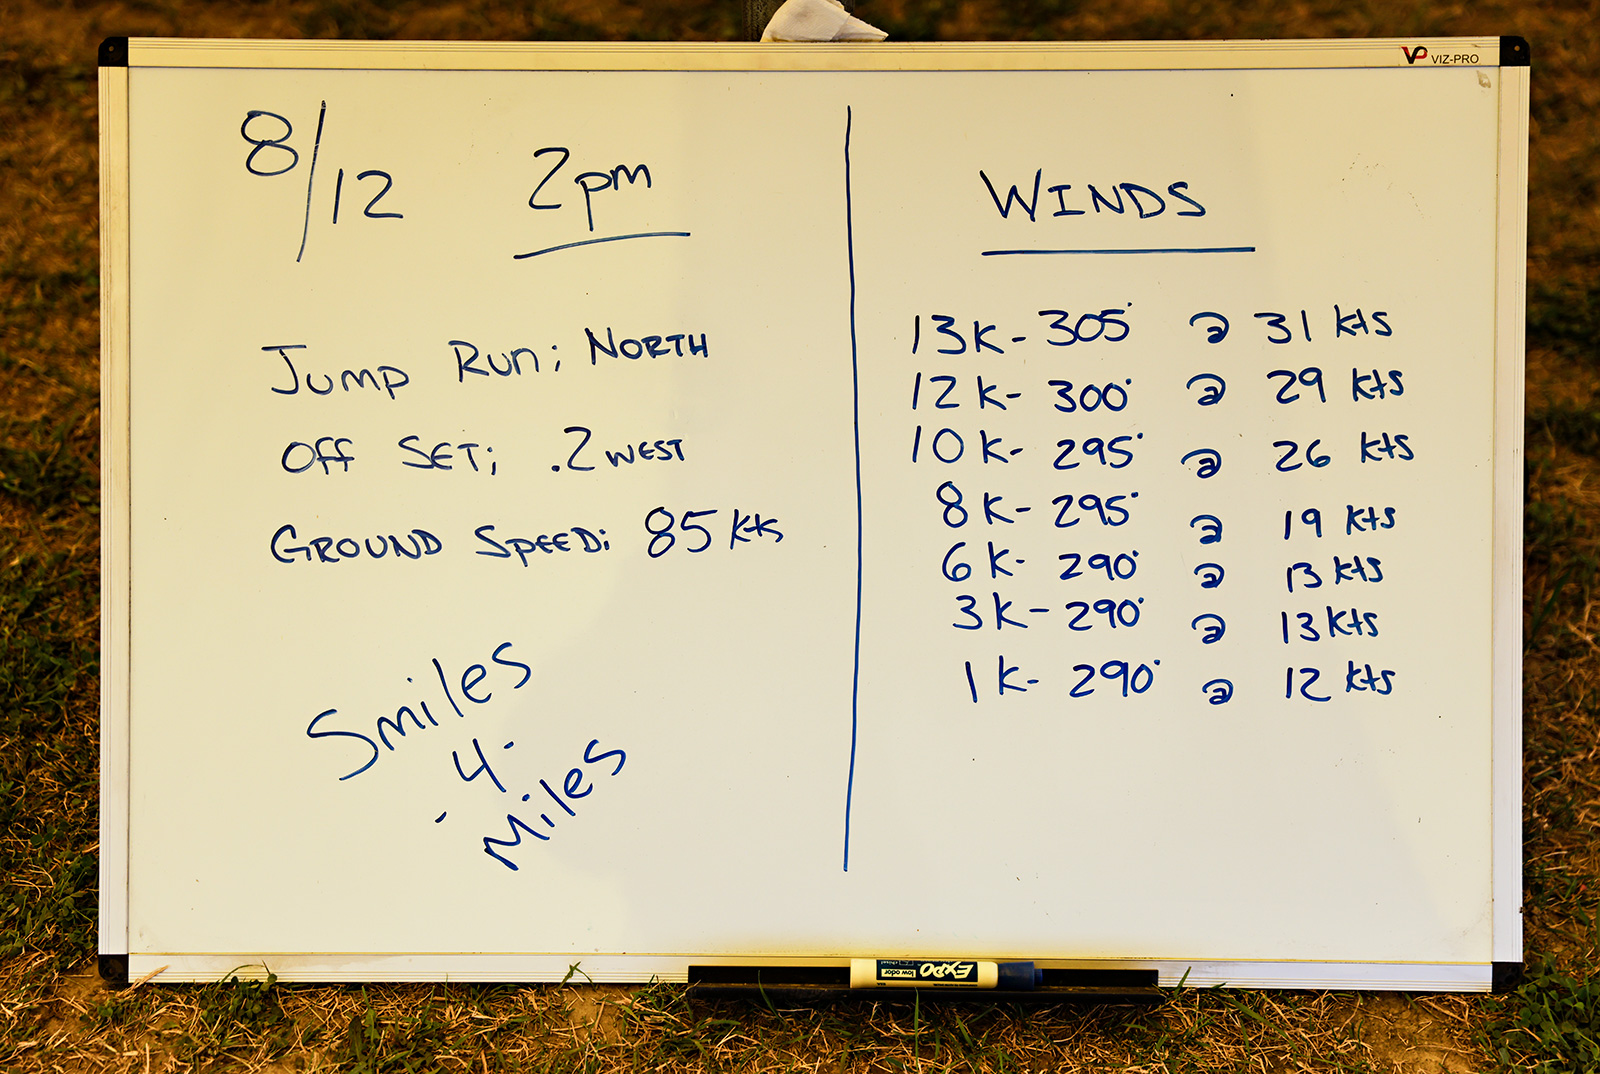 VP VIZ-PRO
8/12 2pm
Jump Run; NORTH
Off SET; .2 WEST
GROUND SPEED: 85 kts
Smiles
-4-
Miles
WINDS
13K- 305° @ 31 kts
12K- 300° @ 29 kts
10K- 295° @ 26 kts
8K- 295° @ 19 kts
6K- 290° @ 13 kts
3K- 290° @ 13 kts
1K- 290° @ 12 kts
EXPO
low odor